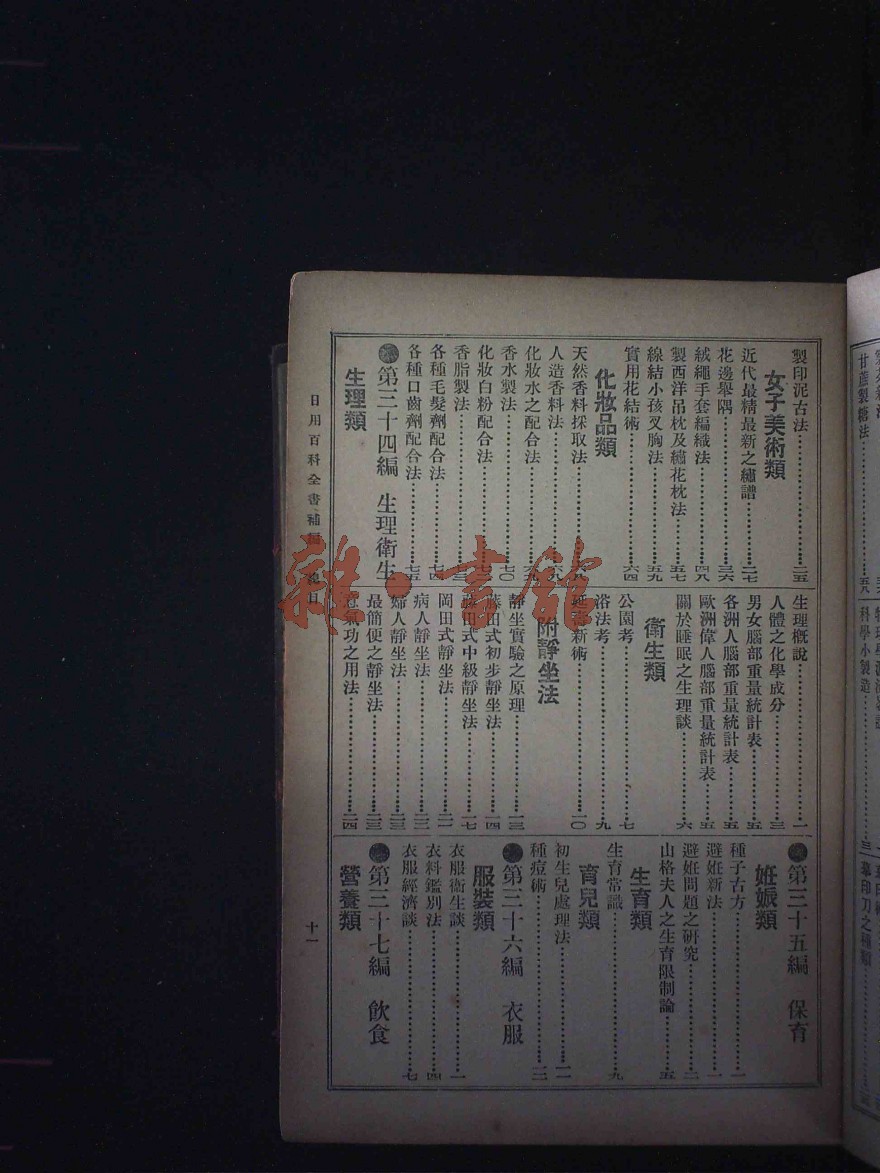 製印泥古法……二五
女子美術類
近代最精最新之繡譜……二七
花邊舉隅……三六
絨繩手套編織法……四八
製西洋吊枕及繡花枕法……五七
線結小孩叉胸法……五九
實用花結術……六四
化妝品類
天然香料採取法……六八
人造香料法……六八
化妝水之配合法……六九
香水製法……七〇
化妝白粉配合法
香脂製法
各種毛髮劑配合法……七四
各種口齒劑配合法……七五
第三十四編 生理衛生
生理類
生理概說……一
人體之化學成分……三
男女腦部重量統計表……五
各洲人腦部重量統計表……五
歐洲偉人腦部重量統計表……五
關於睡眠之生理談……六
衛生類
公園考……七
浴法考……九
延壽新術……一〇
附靜坐法
靜坐實驗之原理……一三
藤田式初步靜坐法……一四
藤田式中級靜坐法……一七
岡田式靜坐法……二一
病人靜坐法……二二
婦人靜坐法……二三
最簡便之靜坐法……二三
冠氣功之用法……二四
第三十五編 保育
妊娠類
種子古方……一
避妊新法……一
避妊問題之研究……二
山格夫人之生育限制論……五
生育類
生育常識……九
育兒類
初生兒處理法……一一
種痘術……一二
第三十六編 衣服
服裝類
衣服衛生談……一
衣料鑑別法……四
衣服經濟談……七
第三十七編 飲食
營養類
日用百科全書補編 總目
十一
雜·書館
甘蔗製糖法
科學小製造
摹印刀之種類